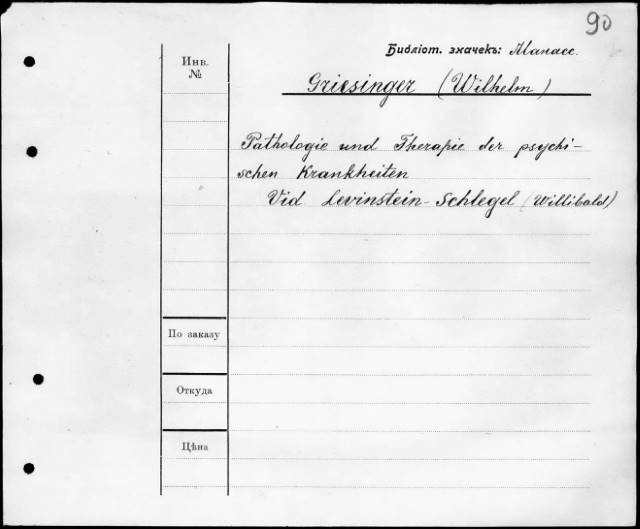 90
Библіот. значекъ: Манасс.
Инв.
№
Griesinger (Wilhelm)
Pathologie und Therapie der psychi-
schen Krankheiten
Vid Levinstein-Schlegel (Willibald)
По заказу
Откуда
Цѣна